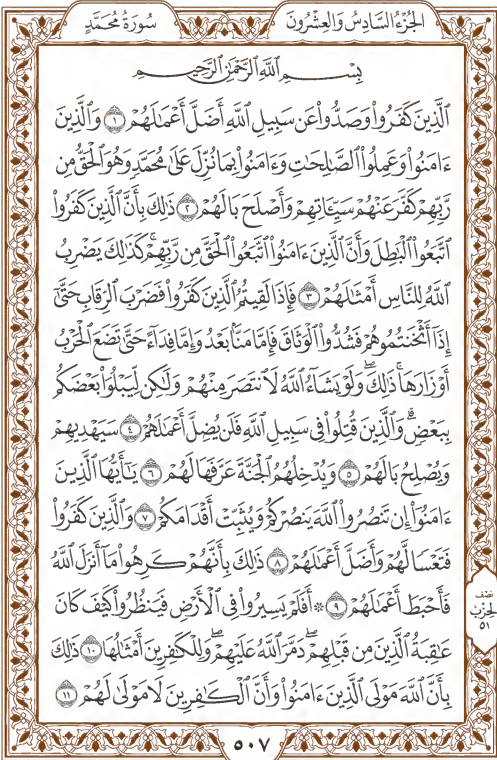 الجُزْءُ السَّادِسُ وَالعِشْرُونَ
سُورَةُ مُحَمَّدٍ
بِسْمِ ٱللَّهِ ٱلرَّحْمَٰنِ ٱلرَّحِيمِ
ٱلَّذِينَ كَفَرُوا۟ وَصَدُّوا۟ عَن سَبِيلِ ٱللَّهِ أَضَلَّ أَعْمَٰلَهُمْ ١ وَٱلَّذِينَ
ءَامَنُوا۟ وَعَمِلُوا۟ ٱلصَّٰلِحَٰتِ وَءَامَنُوا۟ بِمَا نُزِّلَ عَلَىٰ مُحَمَّدٍ وَهُوَ ٱلْحَقُّ مِن
رَّبِّهِمْ كَفَّرَ عَنْهُمْ سَيِّـَٔاتِهِمْ وَأَصْلَحَ بَالَهُمْ ٢ ذَٰلِكَ بِأَنَّ ٱلَّذِينَ كَفَرُوا۟
ٱتَّبَعُوا۟ ٱلْبَٰطِلَ وَأَنَّ ٱلَّذِينَ ءَامَنُوا۟ ٱتَّبَعُوا۟ ٱلْحَقَّ مِن رَّبِّهِمْ ۚ كَذَٰلِكَ يَضْرِبُ
ٱللَّهُ لِلنَّاسِ أَمْثَٰلَهُمْ ٣ فَإِذَا لَقِيتُمُ ٱلَّذِينَ كَفَرُوا۟ فَضَرْبَ ٱلرِّقَابِ حَتَّىٰٓ
إِذَآ أَثْخَنتُمُوهُمْ فَشُدُّوا۟ ٱلْوَثَاقَ فَإِمَّا مَنًّۢا بَعْدُ وَإِمَّا فِدَآءً حَتَّىٰ تَضَعَ ٱلْحَرْبُ
أَوْزَارَهَا ۚ ذَٰلِكَ ۖ وَلَوْ يَشَآءُ ٱللَّهُ لَٱنتَصَرَ مِنْهُمْ وَلَٰكِن لِّيَبْلُوَا۟ بَعْضَكُم
بِبَعْضٍ ۗ وَٱلَّذِينَ قُتِلُوا۟ فِى سَبِيلِ ٱللَّهِ فَلَن يُضِلَّ أَعْمَٰلَهُمْ ٤ سَيَهْدِيهِمْ
وَيُصْلِحُ بَالَهُمْ ٥ وَيُدْخِلُهُمُ ٱلْجَنَّةَ عَرَّفَهَا لَهُمْ ٦ يَٰٓأَيُّهَا ٱلَّذِينَ
ءَامَنُوٓا۟ إِن تَنصُرُوا۟ ٱللَّهَ يَنصُرْكُمْ وَيُثَبِّتْ أَقْدَامَكُمْ ٧ وَٱلَّذِينَ كَفَرُوا۟
فَتَعْسًا لَّهُمْ وَأَضَلَّ أَعْمَٰلَهُمْ ٨ ذَٰلِكَ بِأَنَّهُمْ كَرِهُوا۟ مَآ أَنزَلَ ٱللَّهُ
فَأَحْبَطَ أَعْمَٰلَهُمْ ٩ ۞ أَفَلَمْ يَسِيرُوا۟ فِى ٱلْأَرْضِ فَيَنظُرُوا۟ كَيْفَ كَانَ
عَٰقِبَةُ ٱلَّذِينَ مِن قَبْلِهِمْ ۚ دَمَّرَ ٱللَّهُ عَلَيْهِمْ ۖ وَلِلْكَٰفِرِينَ أَمْثَٰلُهَا ١٠ ذَٰلِكَ
بِأَنَّ ٱللَّهَ مَوْلَى ٱلَّذِينَ ءَامَنُوا۟ وَأَنَّ ٱلْكَٰفِرِينَ لَا مَوْلَىٰ لَهُمْ ١١
نصف
الحزب
٥١
٥٠٧